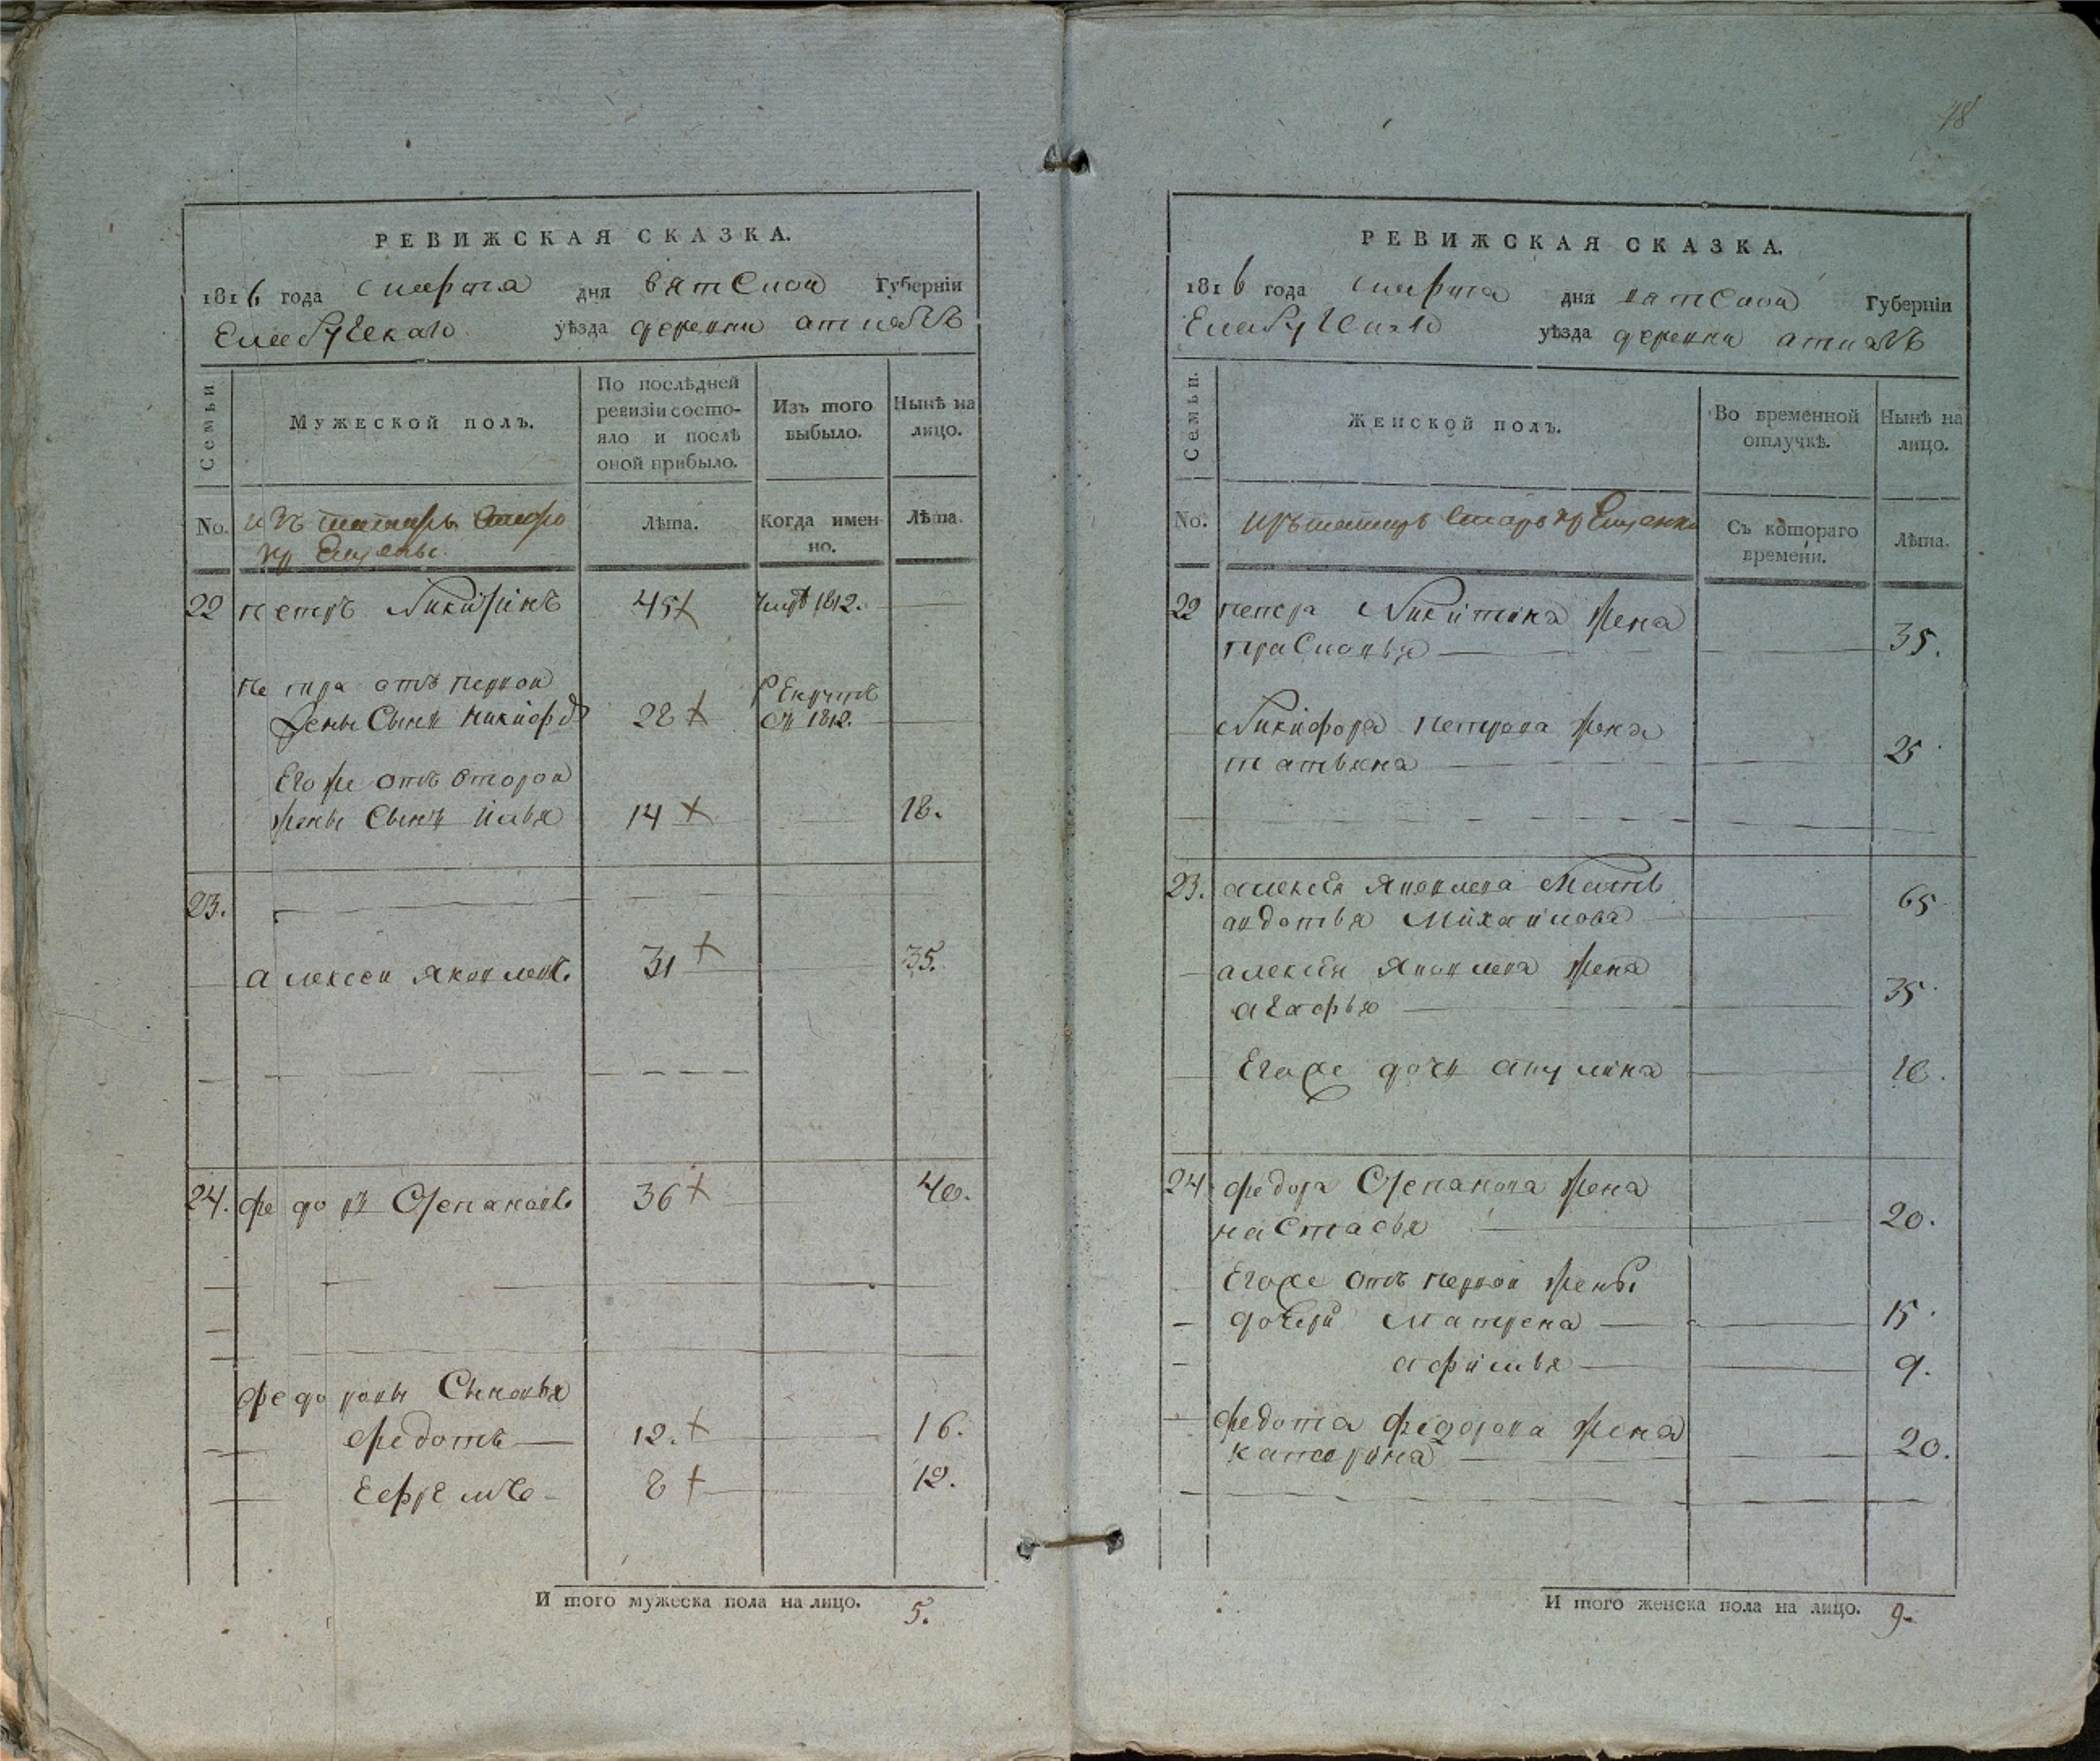 РЕВИЖСКАЯ СКАЗКА.
1816 года марта дня вятской Губерніи
Елабужской уѣзда деревни
Семьи
Мужеской полъ.
По послѣдней ревизіи состо-
яло и послѣ
оной прибыло.
Изъ того
выбыло.
Нынѣ на
лицо.
No.
изъ татаръ старо
крещеныхъ
Лѣта.
Когда имен-
но.
Лѣта.
22 петръ Никитинъ 45 умре 1812.
петра отъ первой
жены сынъ никифоръ 28 рекрутъ
въ 1812.
Его же отъ второй
жены сынъ илья 14 18.
23.
алексеи яковлевъ 31 35.
24. федоръ Степановъ 36 40.
федоровы Сыновья
федотъ 12. 16.
Ефремъ 8 12.
И того мужеска пола на лицо. 5.
48
РЕВИЖСКАЯ СКАЗКА.
1816 года марта дня вятской Губерніи
Елабужской уѣзда деревни
Семьи.
Женской полъ.
Во временной
отлучкѣ.
Нынѣ на
лицо.
No.
изъ татаръ старокрещеныхъ
Съ котораго
времени.
Лѣта.
22 петра Никитина жена
прасковья 35.
Никифора петрова жена
татьяна 25
23. алексѣя яковлева мать
авдотья Михайлова 65
алексѣя яковлева жена
агафья 35
Егоже дочь акулина 10.
24 федора Степанова жена
настасья 20.
Егоже отъ первой жены
дочери матрена 15.
афимья 9.
федота федорова жена
катерина 20.
И того женска пола на лицо. 9.